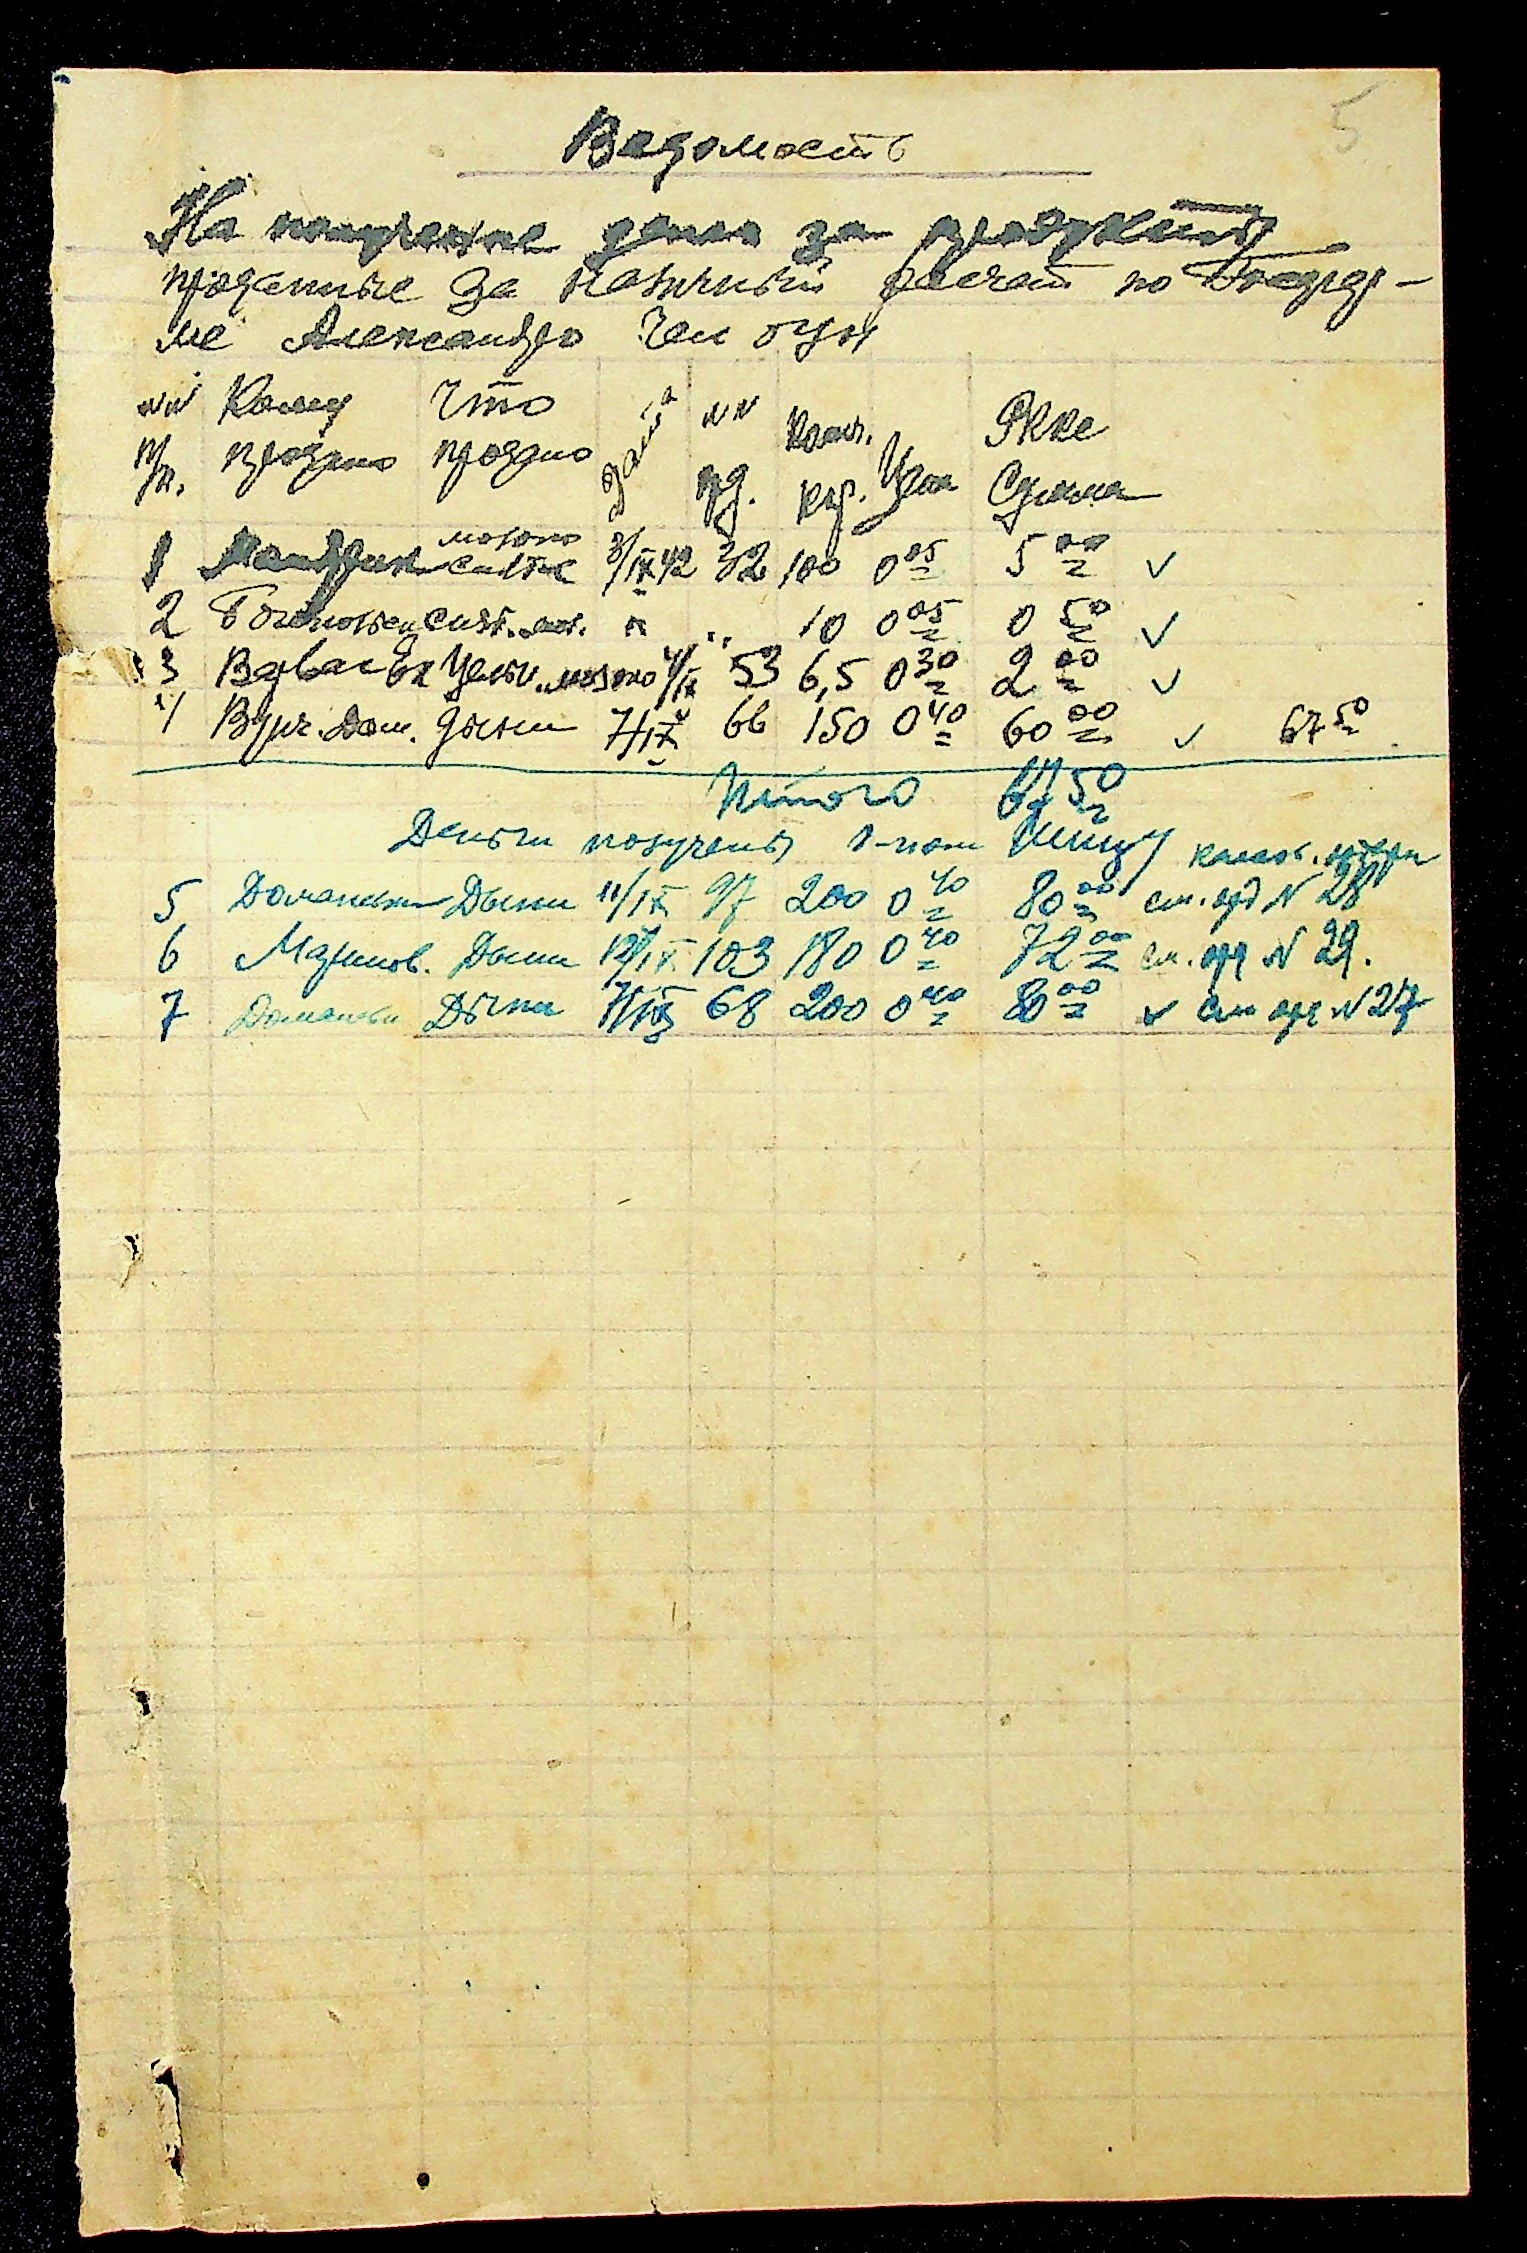 5
Ведомость
На получение денег за продукты
проданные за наличный расчет по
ме Александро
№№ Кому Что Дата №№ Колич. РККе
п/п. продано продано рд. кгр. Цена Сумма
1 молоко
снятое 3/IX 42 32 100 0 05 5 00 ✓
2 снят. мол. " " 10 0 05 0 50 ✓
3 Цельн. молоко 4/IX 53 6,5 0 30 2 00 ✓
4 Дом. дыни 7/IX 66 150 0 40 60 00 ✓ 67 50
Итого 67 50
Деньги получены
5 Дыни 11/IX 97 200 0 40 80 00 см. орд № 28
6 Маримов. Дыни 12/IX 103 180 0 40 72 00 см. орд № 29.
7 Дыни 7/IX 68 200 0 40 80 00 ✓ см орд № 27